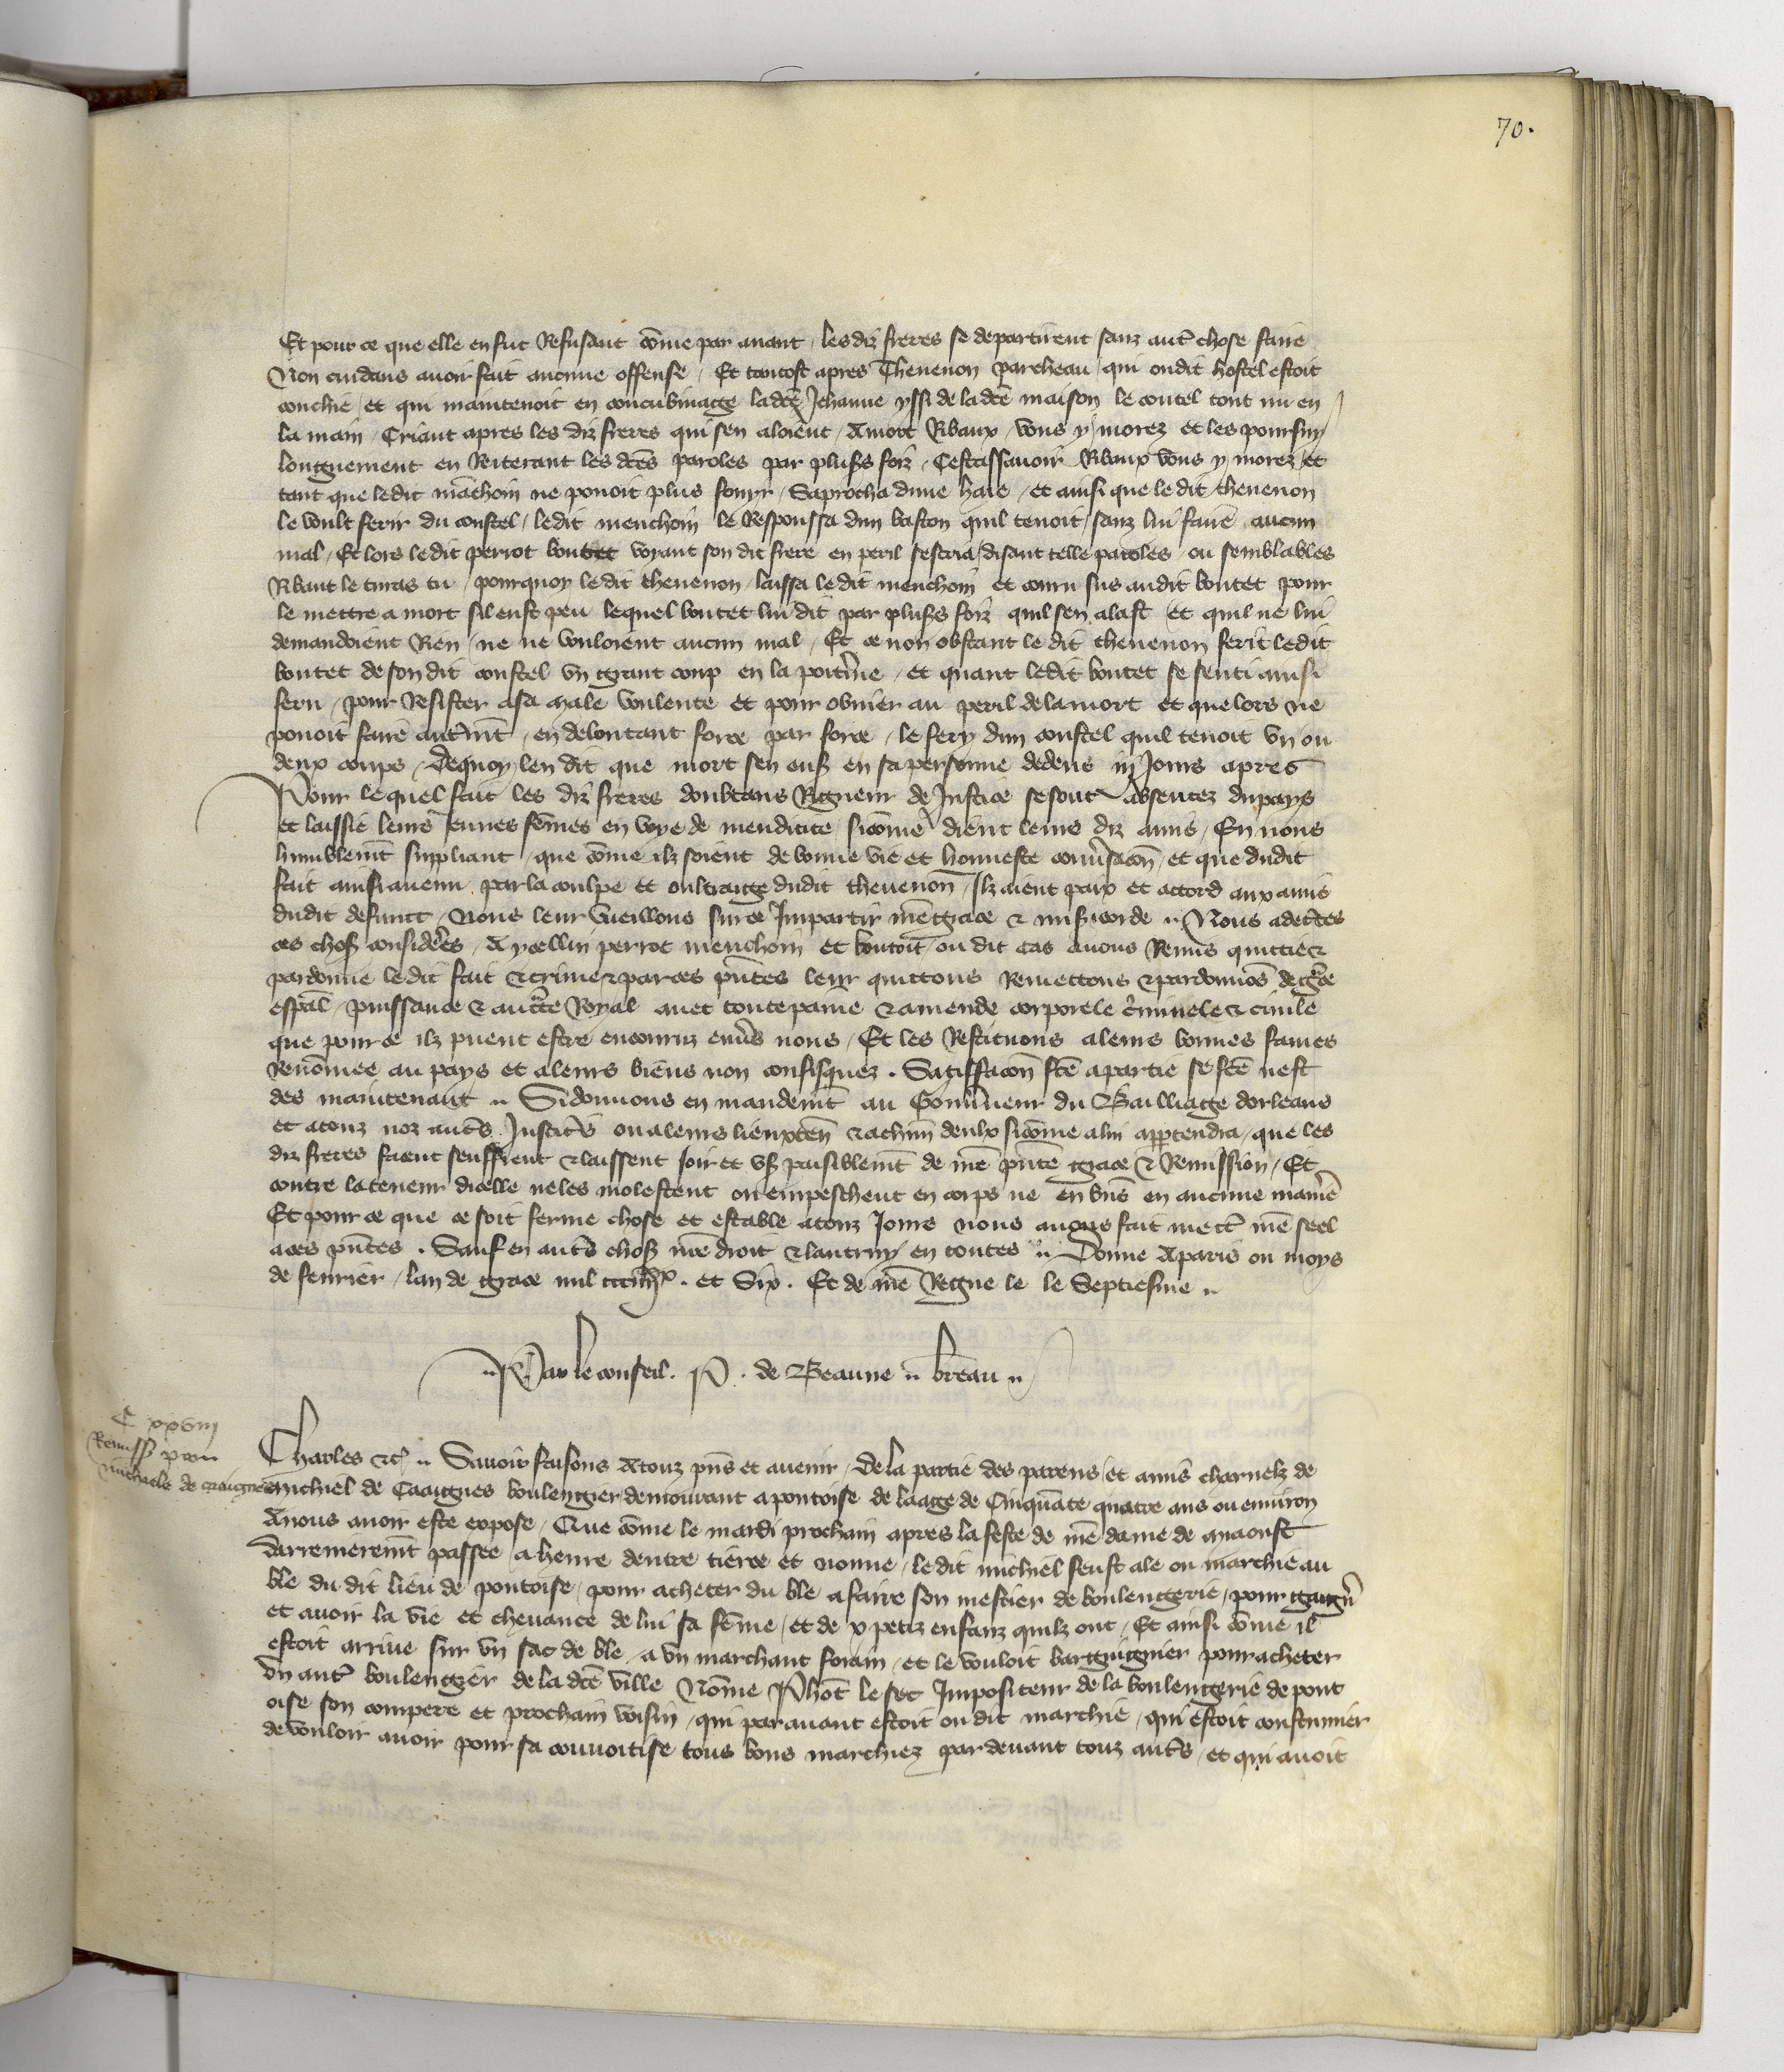 70.
Et pour ce que elle en fut Refusant cōme par auant / les diz freres se departirent sanz autre chose faire
Non cuidans auoir fait aucune offense / Et tantost apres Theuenon Parcheau / qui oudit hostel estoit
couchie / et qui maintenoit en concubinage ladcē Jehanne yssi de ladcē maison le coutel tout nu en
la main / Criant apres les diz freres qui sen aloient / A mort Ribaux / vous y morez et les poursuy
longuement en Reiterant les dcēs paroles par plusš foiz / Cestassauoir Ribaux vous y morez / et
tant que ledit mēchoin ne pouoit plus fouyr / Saprocha dune haie / et ainsi que le dit theuenon
le voult ferir du coustel / ledit menchoin le Respoussa dun baston quil tenoit / sanz lui faire aucun
mal / Et lors ledit perrot boutet voyant son dit frere en peril sescria / disant telle paroles / ou semblables
Ribaut le turas tu / pourquoy ledit theuenon / laissa ledit menchoin et couru sus audit boutet pour
le mettre a mort sil eust peu lequel boutet lui dit par plusš foiz quil sen alast / et quil ne lui
demandoient Rien / ne ne vouloient aucun mal / Et ce non obstant le dit theuenon ferit ledit
boutet de son dit coustel vn grant coup en la poitrīne / et quant ledit boutet se senti ainsi
feru / pour Resister asa male voulente et pour obuier au peril delamort et que lors ne
pouoit faire autremt / en deboutant force par force / le fery dun coustel quil tenoit vn ou
deux coups / Dequoy / len dit que mort sen ensš en sa personne dedens iij Jours apres
Pour lequel fait les diz freres doubtans Rigueur de Justice se sont absentez du pays
et laissie leurs iennes fēmes en voye de mendicite / sicōme dient leurs diz amis / En nous
humblemt suppliant / que cōme ilz soient de bonne vie et honneste conūsacōn / et que dudit
fait ainsi auenu par la coulpe et oultrage dudit theuenon / Ilz aient paix et accord aux amis
dudit defunct / Nous leur vueillons sur ce Impartir nrē grace & misšicorde .. Nous adecētes
ces choses considerēes / A yceulx perrot menchoin et boutoit / ou dit cas auons Remis quittie &
pardonne le dit fait & crime & par ces pñtes leur quittons Remettons & pardonnōs de grāce
espāl / puissance & auctīte Royal auec toute paine & amende corporele criminele & ciuile
que pour ce ilz puent estre encouruz enūs nous / Et les Restituons a leurs bonnes fames
Renōmee au pays et a leurs biens non confisquez . Satisfacōn fcē a partie se fcē nest
des maintenant .. Si donnons en mandemt au Gouūneur du Bailliage dorleans
et a touz noz autēs Justiciers ou a leurs lieuxten̄ & a chun̄ deulx sicōme a lui appartendra / que les
diz freres facent seuffrent & laissent Joir et vsš paisiblemt de nrē pñte grace & Remission / Et
contre la teneur dicelle ne les molestent ou empeschent en corps ne en biēs en aucune manīe
Et pour ce que ce soit ferme chose et estable a touz Jours nous auons fait mectē nrē seel
a ces pñtes . Sauf en autēs choses nrē droit & lautruy en toutes .. Donne A paris ou moys
de feurier / lan de grace mil ccciiijxx . et Six . Et de nrē Regne le le Septiesme ..
.. Par le conseil . P . de Beaune .. brēau ..
C xxviij
Remissš pour
michiele de craignes
Charles &c .. Sauoir faisons A touz pñs et auenir / De la partie des parens / et amis charnelz de
michiel de Caaignes boulenger demourant a pontoise de laage de Cinquāte quatre ans ou enuiron
A nous auoir este expose / Que cōme le mardi prochain apres la feste de nrē dame de myaoust
darrenieremt passee a heure dentre tierce et nonne / ledit michiel feust ale ou marchie au
ble du dit lieu de pontoise / pour acheter du ble a faire son mestier de boulengerie / pour gaign̄
et auoir la vie et cheuance de lui sa fēme / et de v petiz enfanz quilz ont / Et ainsi cōme il
estoit arriue sur vn sac de ble / a vn marchant forain / et le vouloit barguignier pour acheter
vn autē boulenger de la dcē ville Nōme Phōt le sec Impositeur de la boulengerie de pont
oise son compere et prochain voisin / qui parauant estoit ou dit marchie / qui estoit coustumier
de vouloir auoir pour sa couuoitise tous bons marchiez par deuant touz autēs / et qui auoit